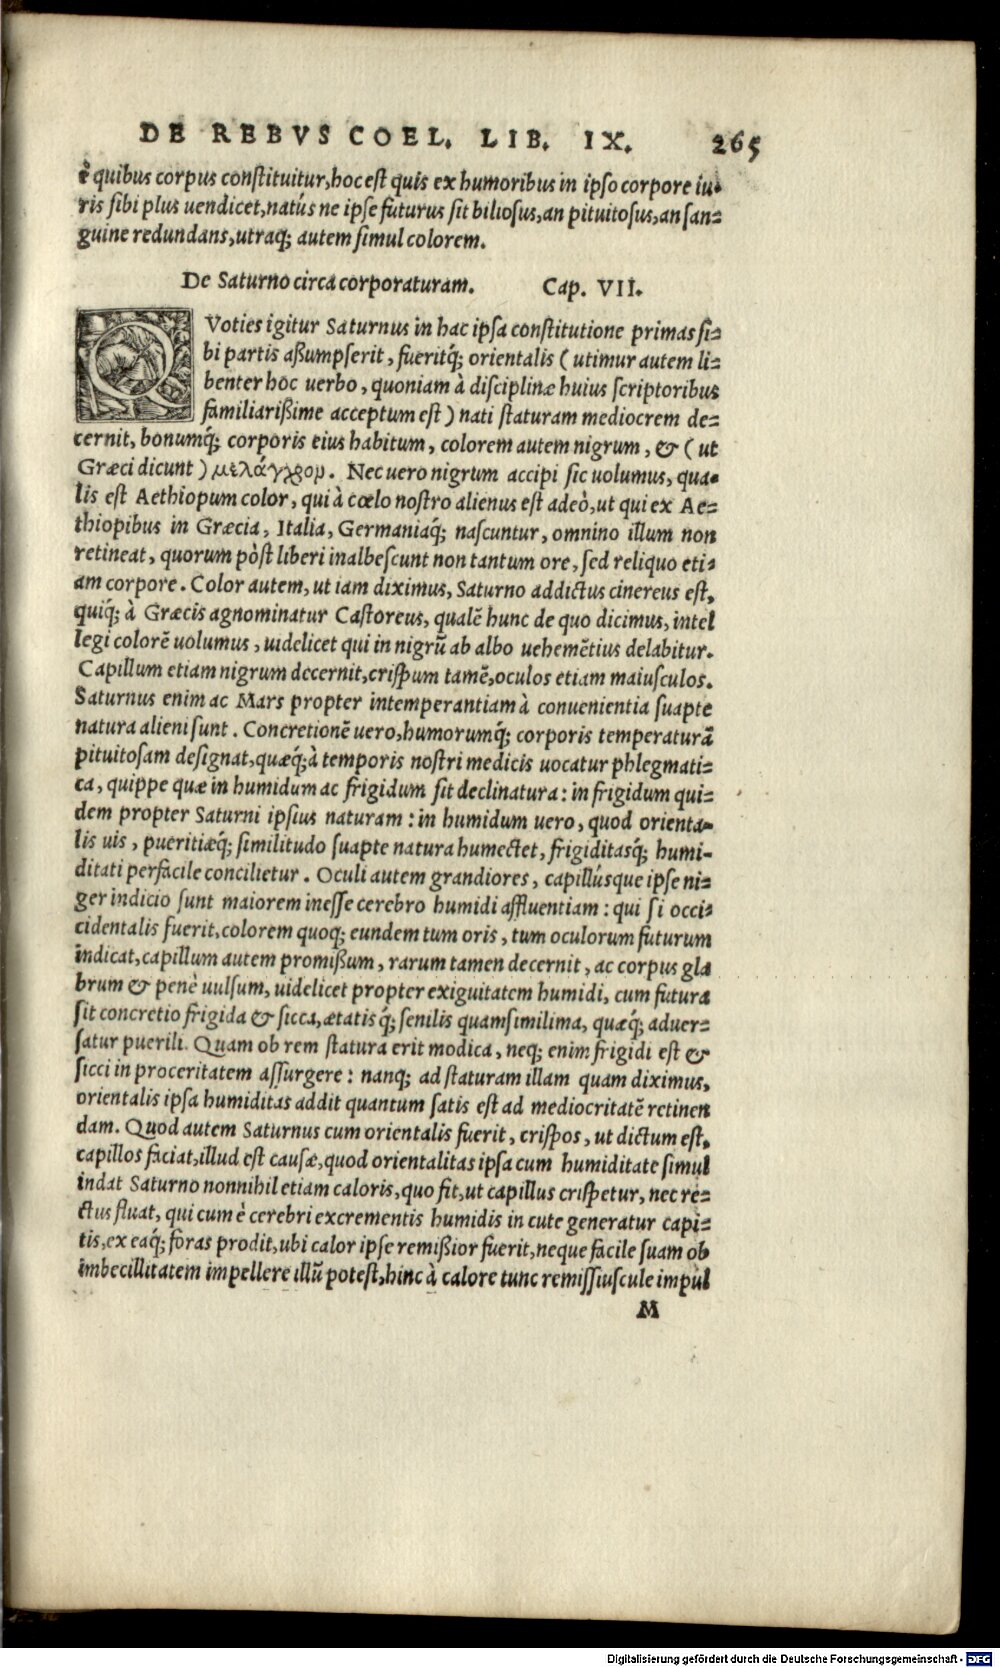 DE REBVS COEL. LIB. IX. 265
è quibus corpus constituitur, hoc est quis ex humoribus in ipso corpore iu-
ris sibi plus uendicet, natús ne ipse futurus sit biliosus, an pituitosus, an san-
guine redundans, utraq; autem simul colorem.
De Saturno circa corporaturam. Cap. VII.
QVoties igitur Saturnus in hac ipsa constitutione primas si-
bi partis aßumpserit, fueritq́; orientalis ( utimur autem li-
benter hoc uerbo, quoniam à disciplinæ huius scriptoribus
familiarißime acceptum est ) nati staturam mediocrem de-
cernit, bonumq́; corporis eius habitum, colorem autem nigrum, & ( ut
Græci dicunt ) μελάγχρορ. Nec uero nigrum accipi sic uolumus, qua-
lis est Aethiopum color, qui à cœlo nostro alienus est adeò, ut qui ex Ae-
thiopibus in Græcia, Italia, Germaniaq́; nascuntur, omnino illum non
retineat, quorum pòst liberi inalbescunt non tantum ore, sed reliquo eti-
am corpore. Color autem, ut iam diximus, Saturno addictus cinereus est,
quiq́; à Græcis agnominatur Castoreus, qualē hunc de quo dicimus, intel
legi colorē uolumus, uidelicet qui in nigrū ab albo uehemētius delabitur.
Capillum etiam nigrum decernit, crispum tamē, oculos etiam maiusculos.
Saturnus enim ac Mars propter intemperantiam à conuenientia suapte
natura alieni sunt. Concretionē uero, humorumq́; corporis temperaturā
pituitosam designat, quæq́; à temporis nostri medicis uocatur phlegmati-
ca, quippe quæ in humidum ac frigidum sit declinatura: in frigidum qui-
dem propter Saturni ipsius naturam: in humidum uero, quod orienta-
lis uis, pueritiæq́; similitudo suapte natura humectet, frigiditasq́; humi-
ditati perfacile concilietur. Oculi autem grandiores, capillúsque ipse ni-
ger indicio sunt maiorem inesse cerebro humidi affluentiam: qui si occi-
cidentalis fuerit, colorem quoq; eundem tum oris, tum oculorum futurum
indicat, capillum autem promißum, rarum tamen decernit, ac corpus gla
brum & penè uulsum, uidelicet propter exiguitatem humidi, cum futura
sit concretio frigida & sicca, ætatis q́; senilis quamsimilima, quæq́; aduer-
satur puerili. Quam ob rem statura erit modica, neq; enim frigidi est &
sicci in proceritatem assurgere: nanq; ad staturam illam quam diximus,
orientalis ipsa humiditas addit quantum satis est ad mediocritatē retinen
dam. Quod autem Saturnus cum orientalis fuerit, crispos, ut dictum est,
capillos faciat, illud est causæ, quod orientalitas ipsa cum humiditate simul
indat Saturno nonnihil etiam caloris, quo fit, ut capillus crispetur, nec re-
ctus fluat, qui cum è cerebri excrementis humidis in cute generatur capi-
tis, ex eaq́; foras prodit, ubi calor ipse remißior fuerit, neque facile suam ob
imbecillitatem impellere illū potest, hinc à calore tunc remissiuscule impul
M
Digitalisierung gefördert durch die Deutsche Forschungsgemeinschaft - DFG